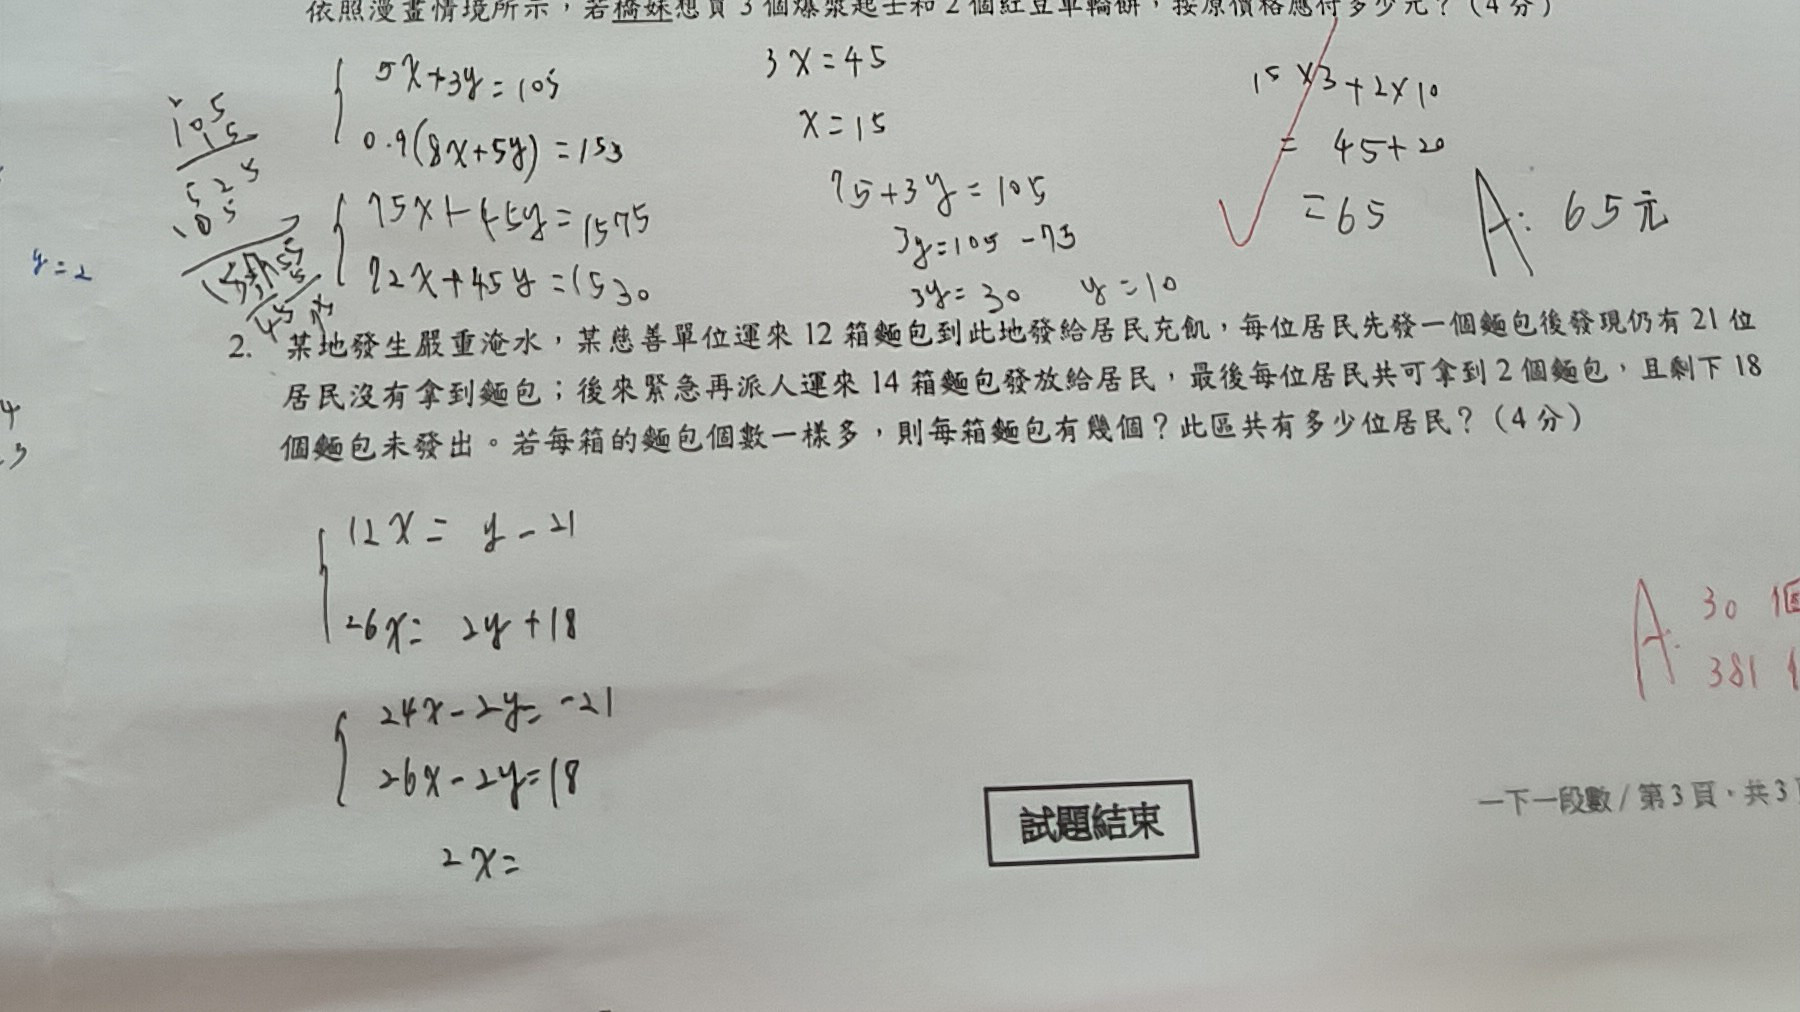 依照漫畫情境所示，若橋妹想買3個爆漿起士和2個紅豆車輪餅，按原價格應付多少元？（4分）
5x+3y=105
0.9(8x+5y)=153
75x+45y=1575
72x+45y=1530
105
15
525
105
3x=45
x=15
75+3y=105
3y=105-75
3y=30 y=10
15×3+2×10
=45+20
=65
A: 65元
y=2
2. 某地發生嚴重淹水，某慈善單位運來12箱麵包到此地發給居民充飢，每位居民先發一個麵包後發現仍有21位
居民沒有拿到麵包；後來緊急再派人運來14箱麵包發放給居民，最後每位居民共可拿到2個麵包，且剩下18
個麵包未發出。若每箱的麵包個數一樣多，則每箱麵包有幾個？此區共有多少位居民？（4分）
4
3
12x=y-21
26x=2y+18
24x-2y=-21
26x-2y=18
2x=
A: 30個
381
試題結束
一下一段數/第3頁，共3